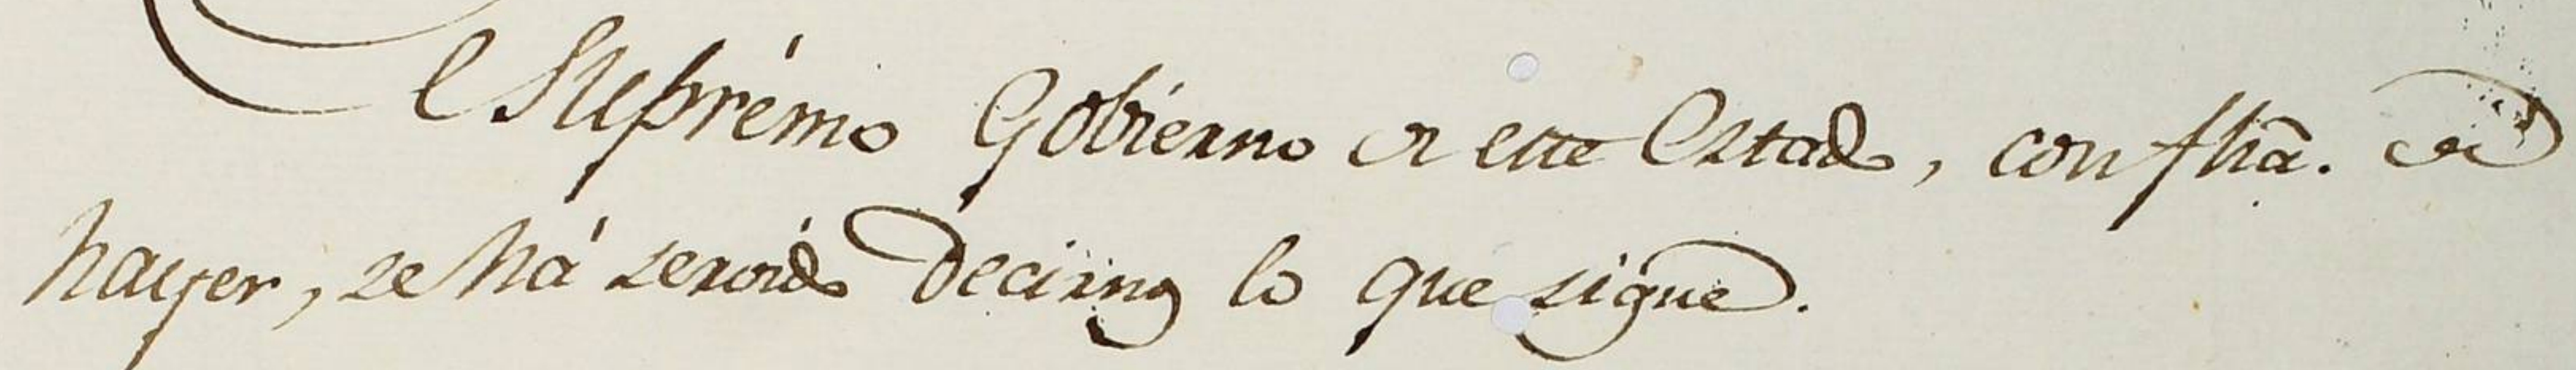 El Suprémo Gobierno de este Estado, con fhã. de
hayer, se há servido decirnos lo que sigue.